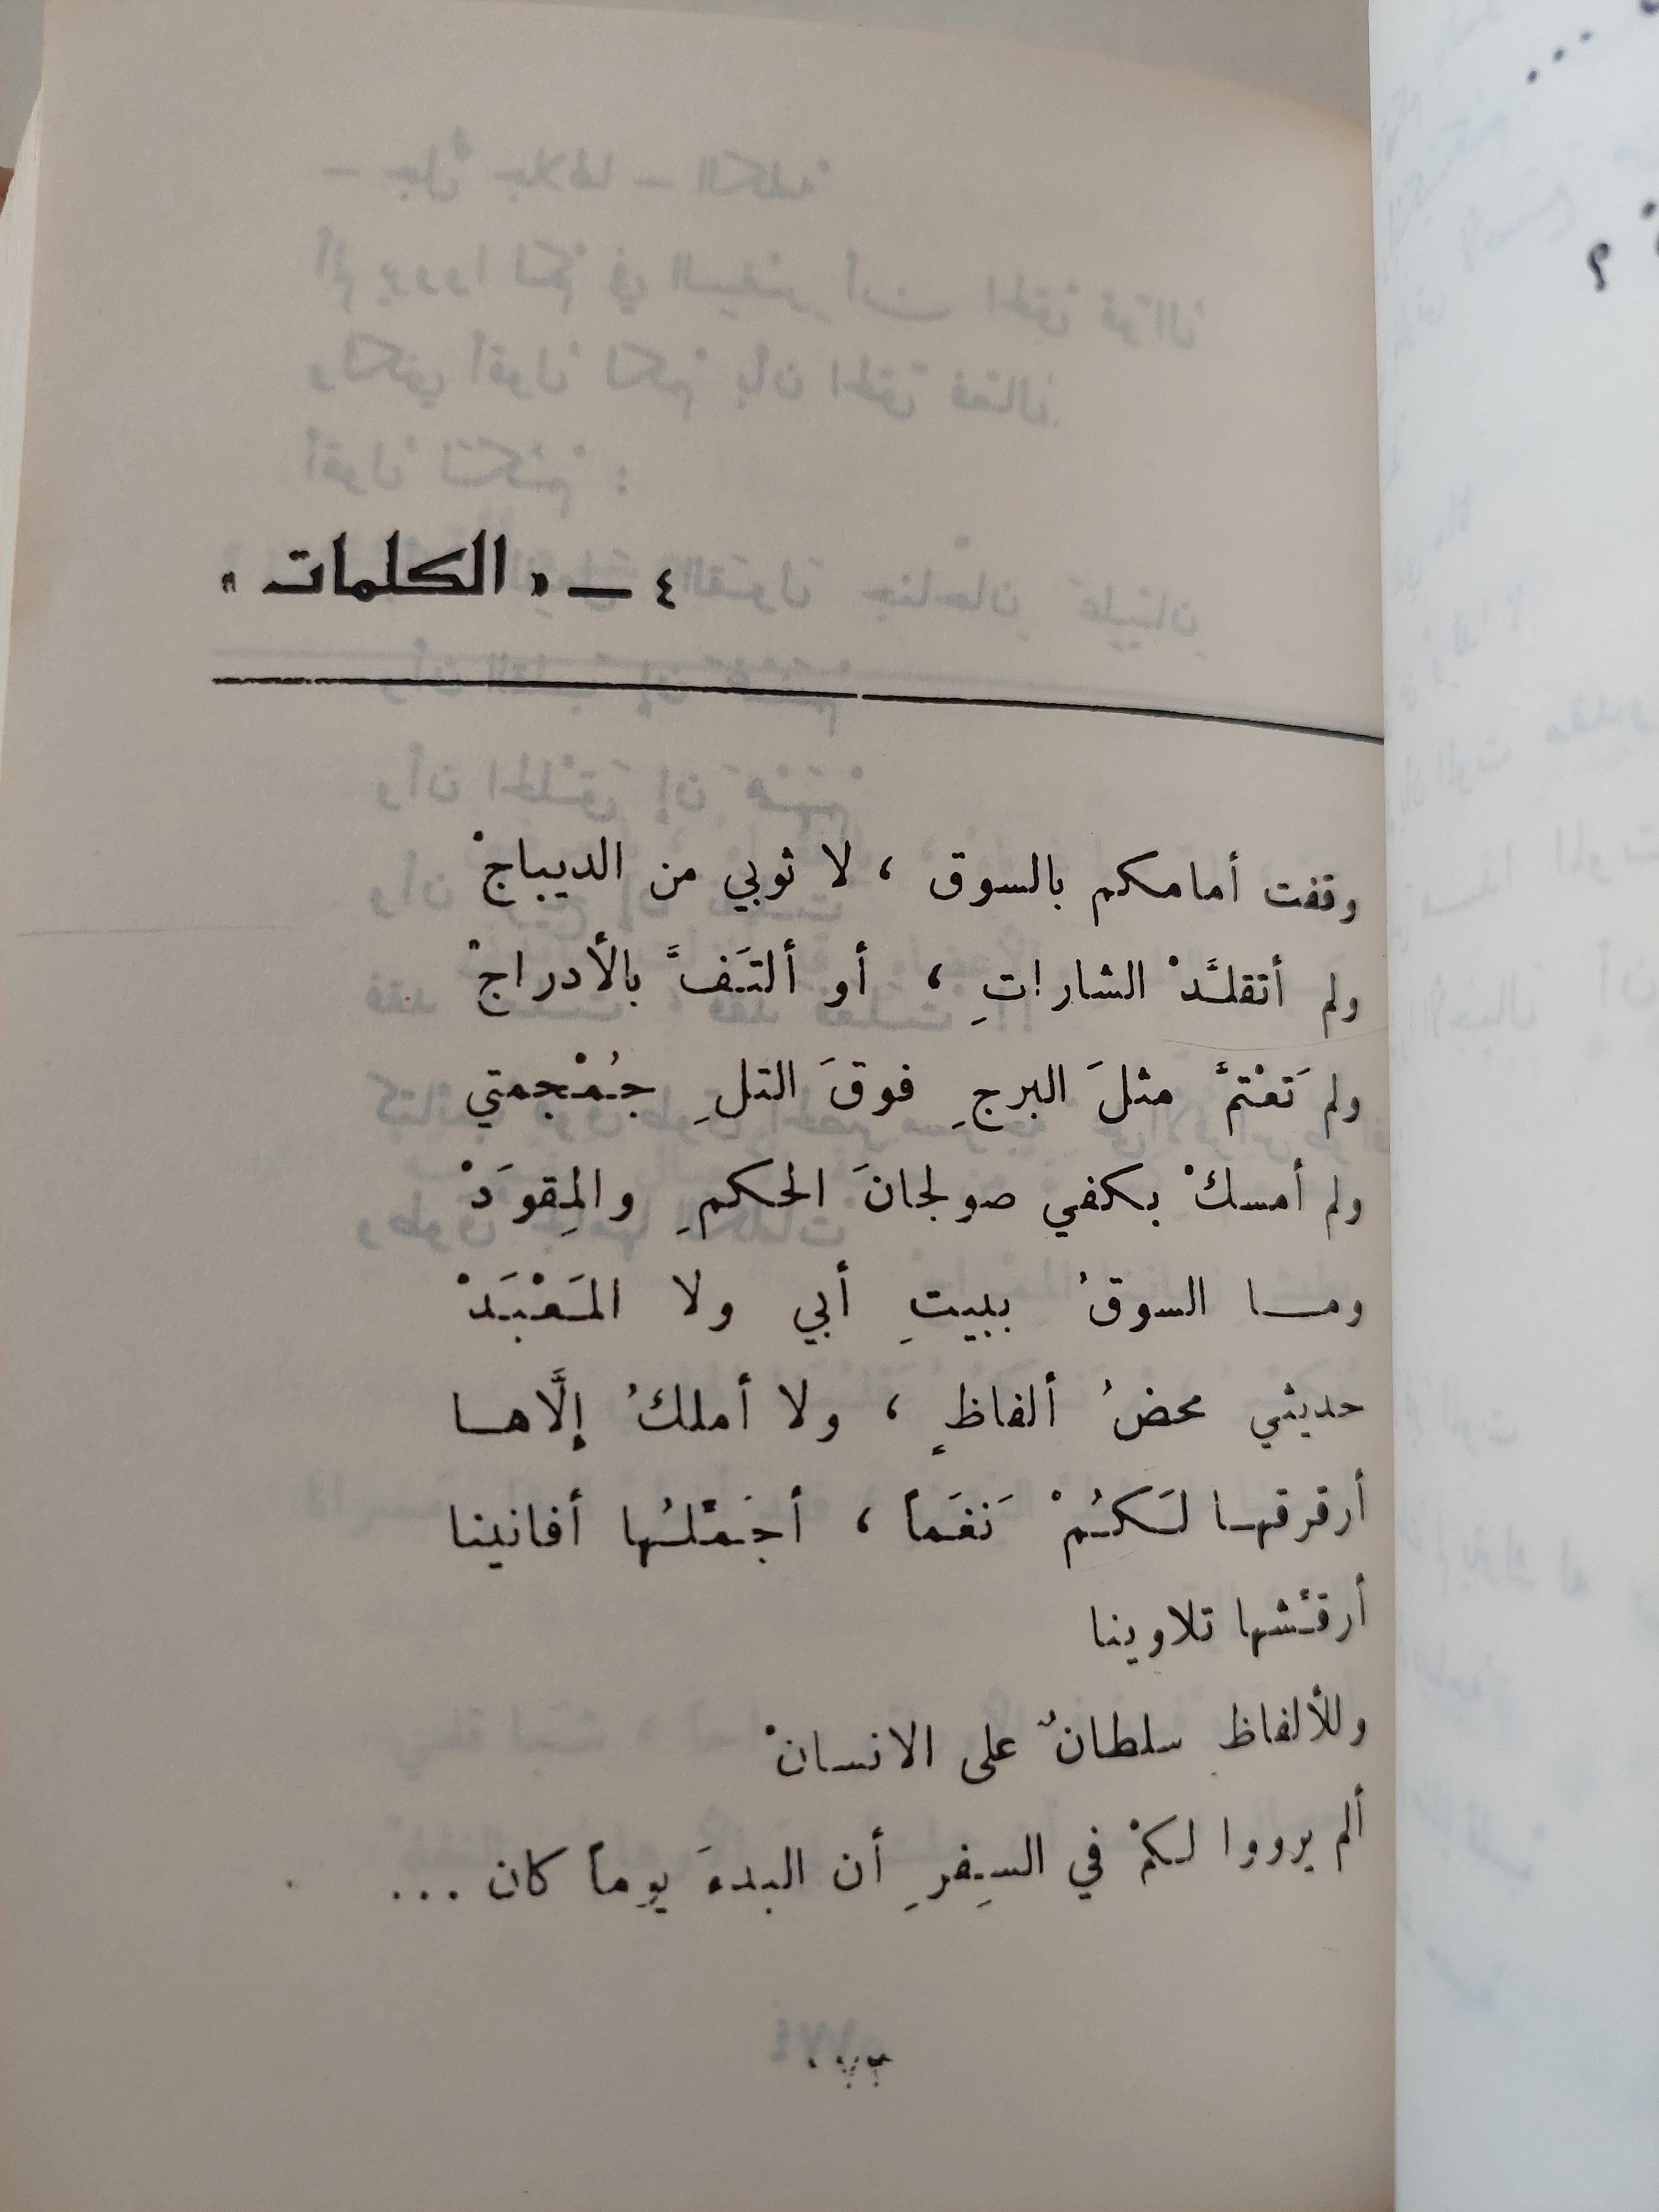 ٤ – « الكلمات »
وقفت أمامكم بالسوق ، لا ثوبي من الديباجْ
ولم أتقلَّدْ الشاراتِ ، أو ألتَفَّ بالأدراجْ
ولم تَعْتمَّ مثلَ البرجِ فوقَ التلِ جُمْجمتي
ولم أمسكْ بكفي صولجانَ الحكمِ والمِقوَدْ
وما السوقُ ببيتِ أبي ولا المَعْبَدْ
حديثي محضُ ألفاظٍ ، ولا أملكُ إلَّاها
أرقرقها لَكُمْ نَغَماً ، أجَمِّلُها أفانينا
أرقّشها تلاوينا
وللألفاظ سلطانٌ على الانسانْ
ألم يرووا لكمْ في السِفرِ أن البدءَ يوماً كان ...